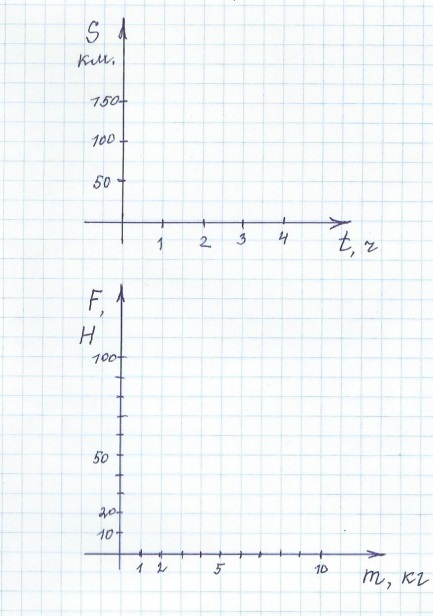 S
км.
150
100
50
1 2 3 4 t, ч
F,
Н
100
50
20
10
1 2 5 10 m, кг